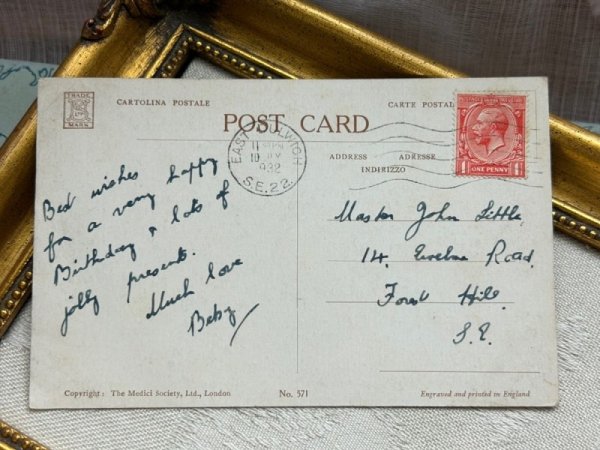 TRADE
MARK
CARTOLINA POSTALE
CARTE POSTALE
POST CARD
EAST DULWICH
1932
S.E.22.
ADDRESS ADRESSE
INDIRIZZO
ONE PENNY
Best wishes
for a very happy
Birthday & lots of
jolly presents.
Much love
Betsy
Master John Little
14. Ewelme Road.
Forest Hill.
S.E.
Copyright: The Medici Society, Ltd., London
No. 571
Engraved and printed in England